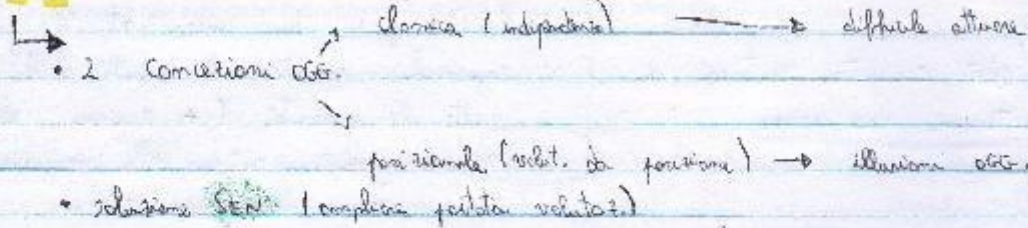 classica (indipendente) → difficile attuare
• 2 Concezioni OGG.
posizionale (valut. da posizione) → illusioni OGG.
• soluzione SEN (ampliare portata valutaz.)